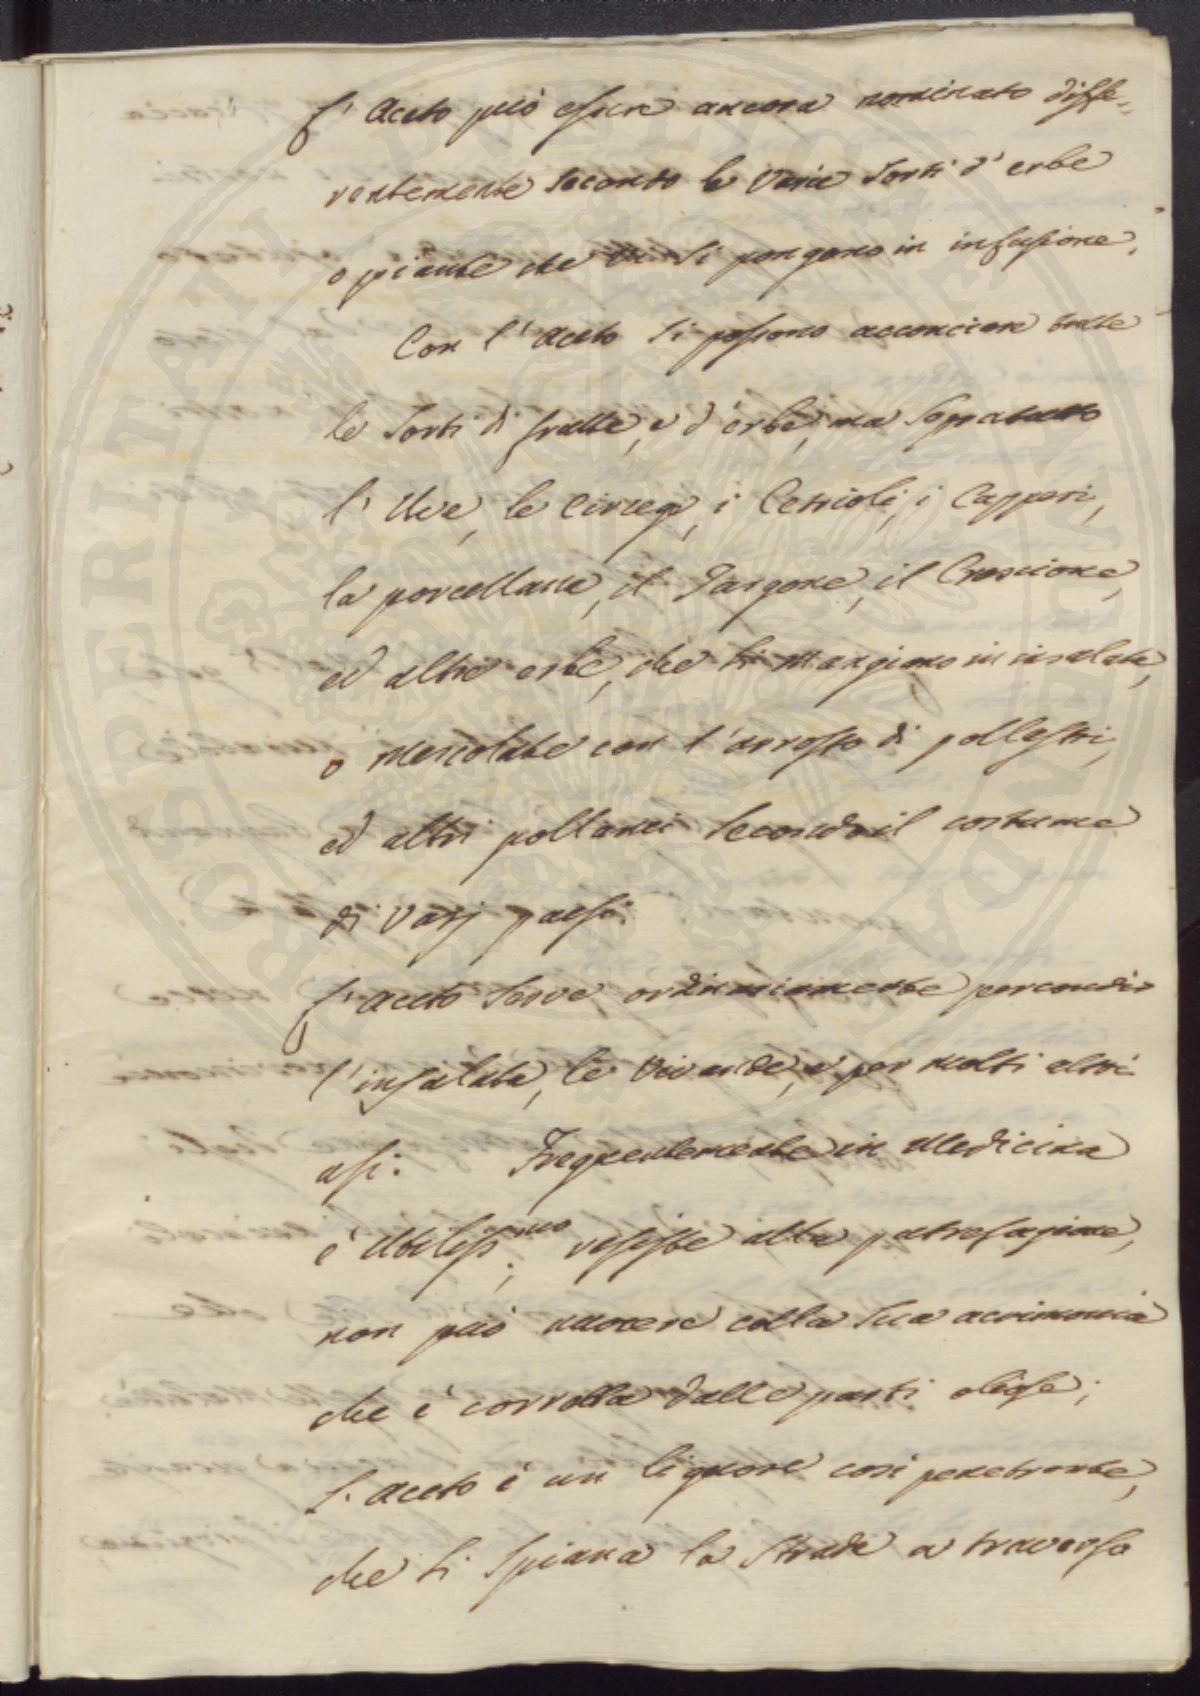 L'Aceto può essere ancora nominato diffe=
rentemente secondo le varie sorti d'erbe
o piante che vi si pongono in infusione.
Con l'aceto si possono acconciare tutte
le sorti di frutte, e d'erbe, ma sopratutto
l'Uve, le Ciriege, i Cetrioli, i Cappari,
la porcellana, il Targone, il Crescione,
ed altre erbe, che si mangiano in insalata,
o mescolate con l'arrosto di pollastri,
ed altri pollami secondo il costume
di varj paesi.
L'aceto serve ordinariamente per condir
l'insalata, le vivande, e per molti altri
usi. Frequentemente in Medicina
è Utiliss.mo, resiste alla putrefazione,
non può nuocere colla sua acrimonia
che è corretta dalle parti oliose;
L'aceto è un liquore così penetrante,
che si spiana la strada a traverso
PROSPERITATI PUBLICAE AUGENDAE